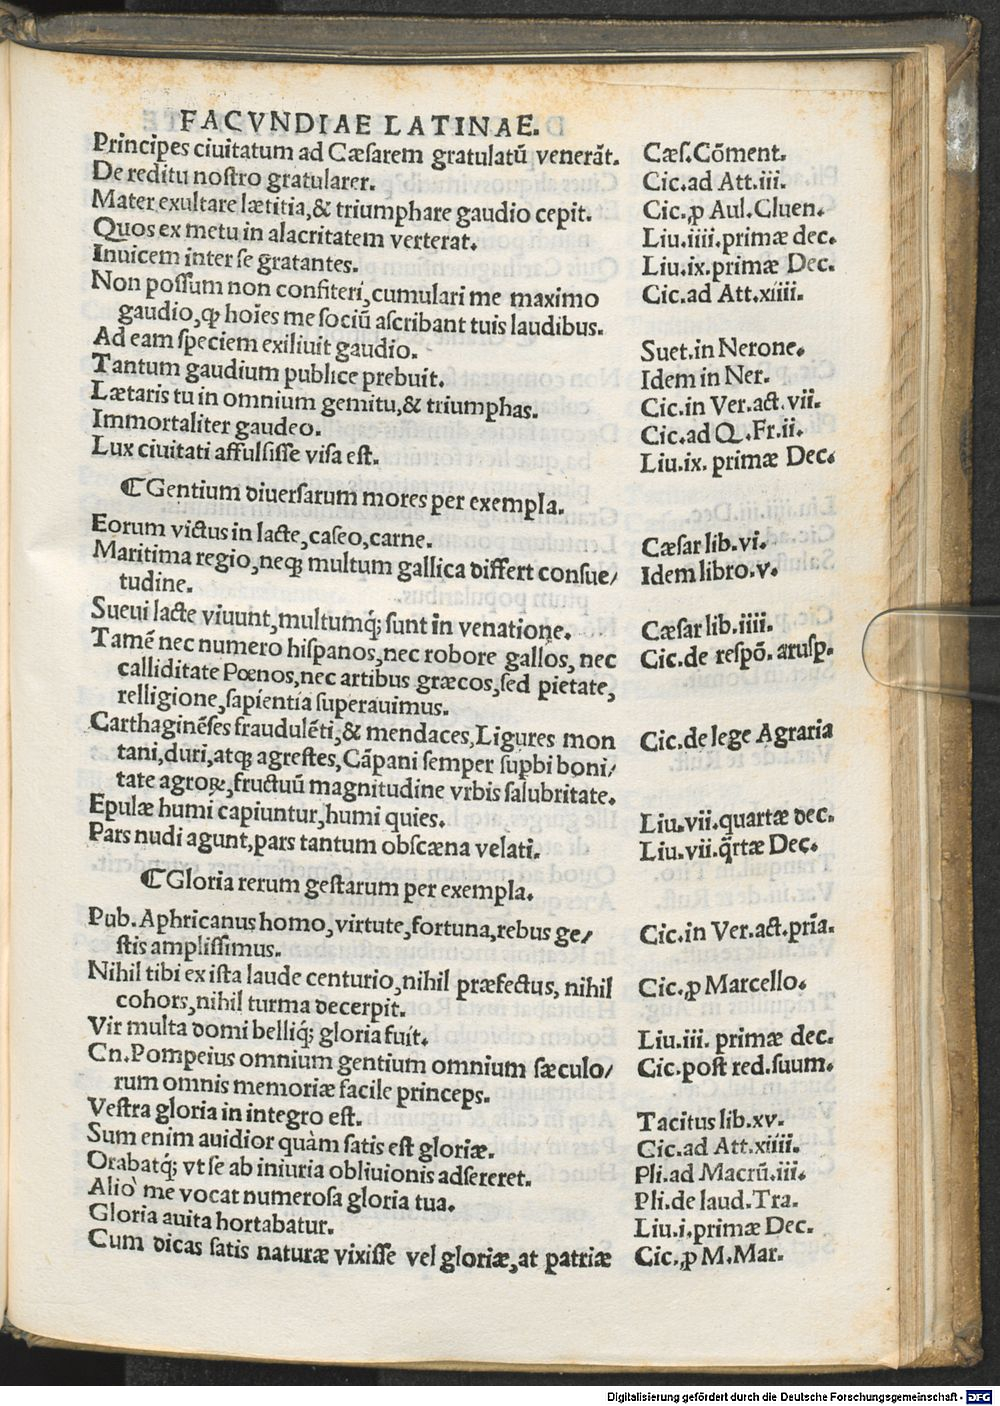 FACVNDIAE LATINAE.
Principes ciuitatum ad Cæsarem gratulatū venerāt. Cæs.Cōment.
De reditu nostro gratularer. Cic.ad Att.iii.
Mater exultare lætitia,& triumphare gaudio cepit. Cic.ꝓ Aul.Cluen.
Quos ex metu in alacritatem verterat. Liu.iiii.primæ dec.
Inuicem inter se gratantes. Liu.ix.primæ Dec.
Non possum non confiteri,cumulari me maximo Cic.ad Att.xiiii.
gaudio,ꝙ hoīes me sociū ascribant tuis laudibus.
Ad eam speciem exiliuit gaudio. Suet.in Nerone.
Tantum gaudium publice prebuit. Idem in Ner.
Lætaris tu in omnium gemitu,& triumphas. Cic.in Ver.act.vii.
Immortaliter gaudeo. Cic.ad Q.Fr.ii.
Lux ciuitati affulsisse visa est. Liu.ix. primæ Dec.
¶Gentium diuersarum mores per exempla.
Eorum victus in lacte,caseo,carne. Cæsar lib.vi.
Maritima regio,neqꝫ multum gallica differt consue/ Idem libro.v.
tudine.
Sueui lacte viuunt,multumq́ꝫ sunt in venatione. Cæsar lib.iiii.
Tamē nec numero hispanos,nec robore gallos, nec Cic.de respō. arusp.
calliditate Pœnos,nec artibus græcos,sed pietate,
relligione,sapientia superauimus.
Carthaginēses fraudulēti,& mendaces,Ligures mon Cic.de lege Agraria
tani,duri,atqꝫ agrestes,Cāpani semper supbi boni/
tate agroꝝ,fructuū magnitudine vrbis salubritate.
Epulæ humi capiuntur,humi quies. Liu.vii.quartæ dec.
Pars nudi agunt,pars tantum obscæna velati. Liu.vii.q̄rtæ Dec.
¶Gloria rerum gestarum per exempla.
Pub.Aphricanus homo,virtute,fortuna,rebus ge/ Cic.in Ver.act.pria̅.
stis amplissimus.
Nihil tibi ex ista laude centurio,nihil præfectus, nihil Cic.ꝓ Marcello.
cohors,nihil turma decerpit.
Vir multa domi belliq́ꝫ gloria fuit. Liu.iii. primæ dec.
Cn.Pompeius omnium gentium omnium sæculo/ Cic.post red.suum.
rum omnis memoriæ facile princeps.
Vestra gloria in integro est. Tacitus lib.xv.
Sum enim auidior quàm satis est gloriæ. Cic.ad Att.xiiii.
Orabatq́ꝫ vt se ab iniuria obliuionis adsereret. Pli.ad Macrū.iii.
Aliò me vocat numerosa gloria tua. Pli.de laud.Tra.
Gloria auita hortabatur. Liu.i.primæ Dec.
Cum dicas satis naturæ vixisse vel gloriæ,at patriæ Cic.ꝓ M.Mar.
Digitalisierung gefördert durch die Deutsche Forschungsgemeinschaft - DFG